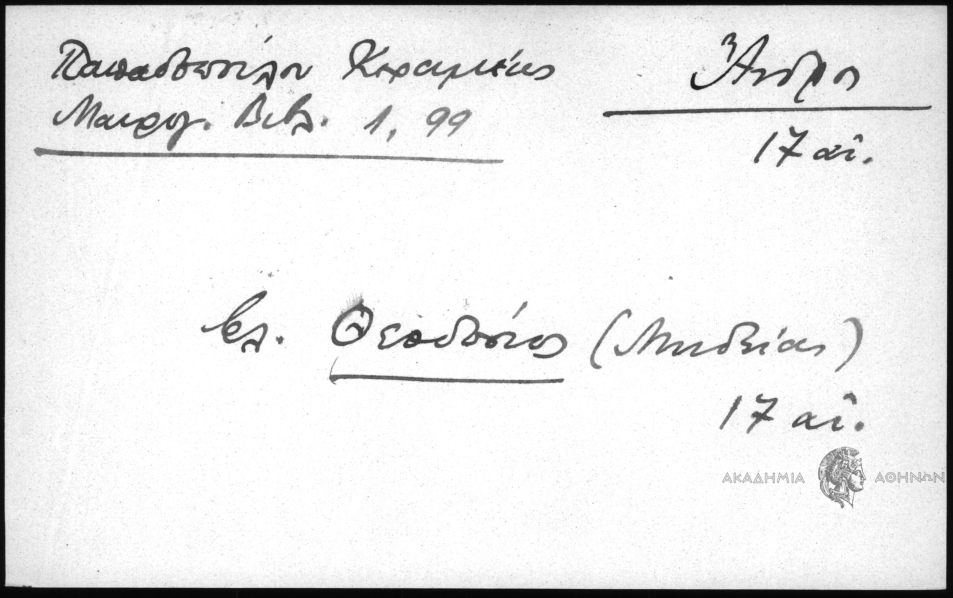 Παπαδοπούλου Κεραμέως
Μαυρογ. Βιβλ. 1, 99
Ἄνδρος
17 αἰ.
βλ. Θεοδόσιος (Μηδείας)
17 αἰ.
ΑΚΑΔΗΜΙΑ ΑΘΗΝΩΝ